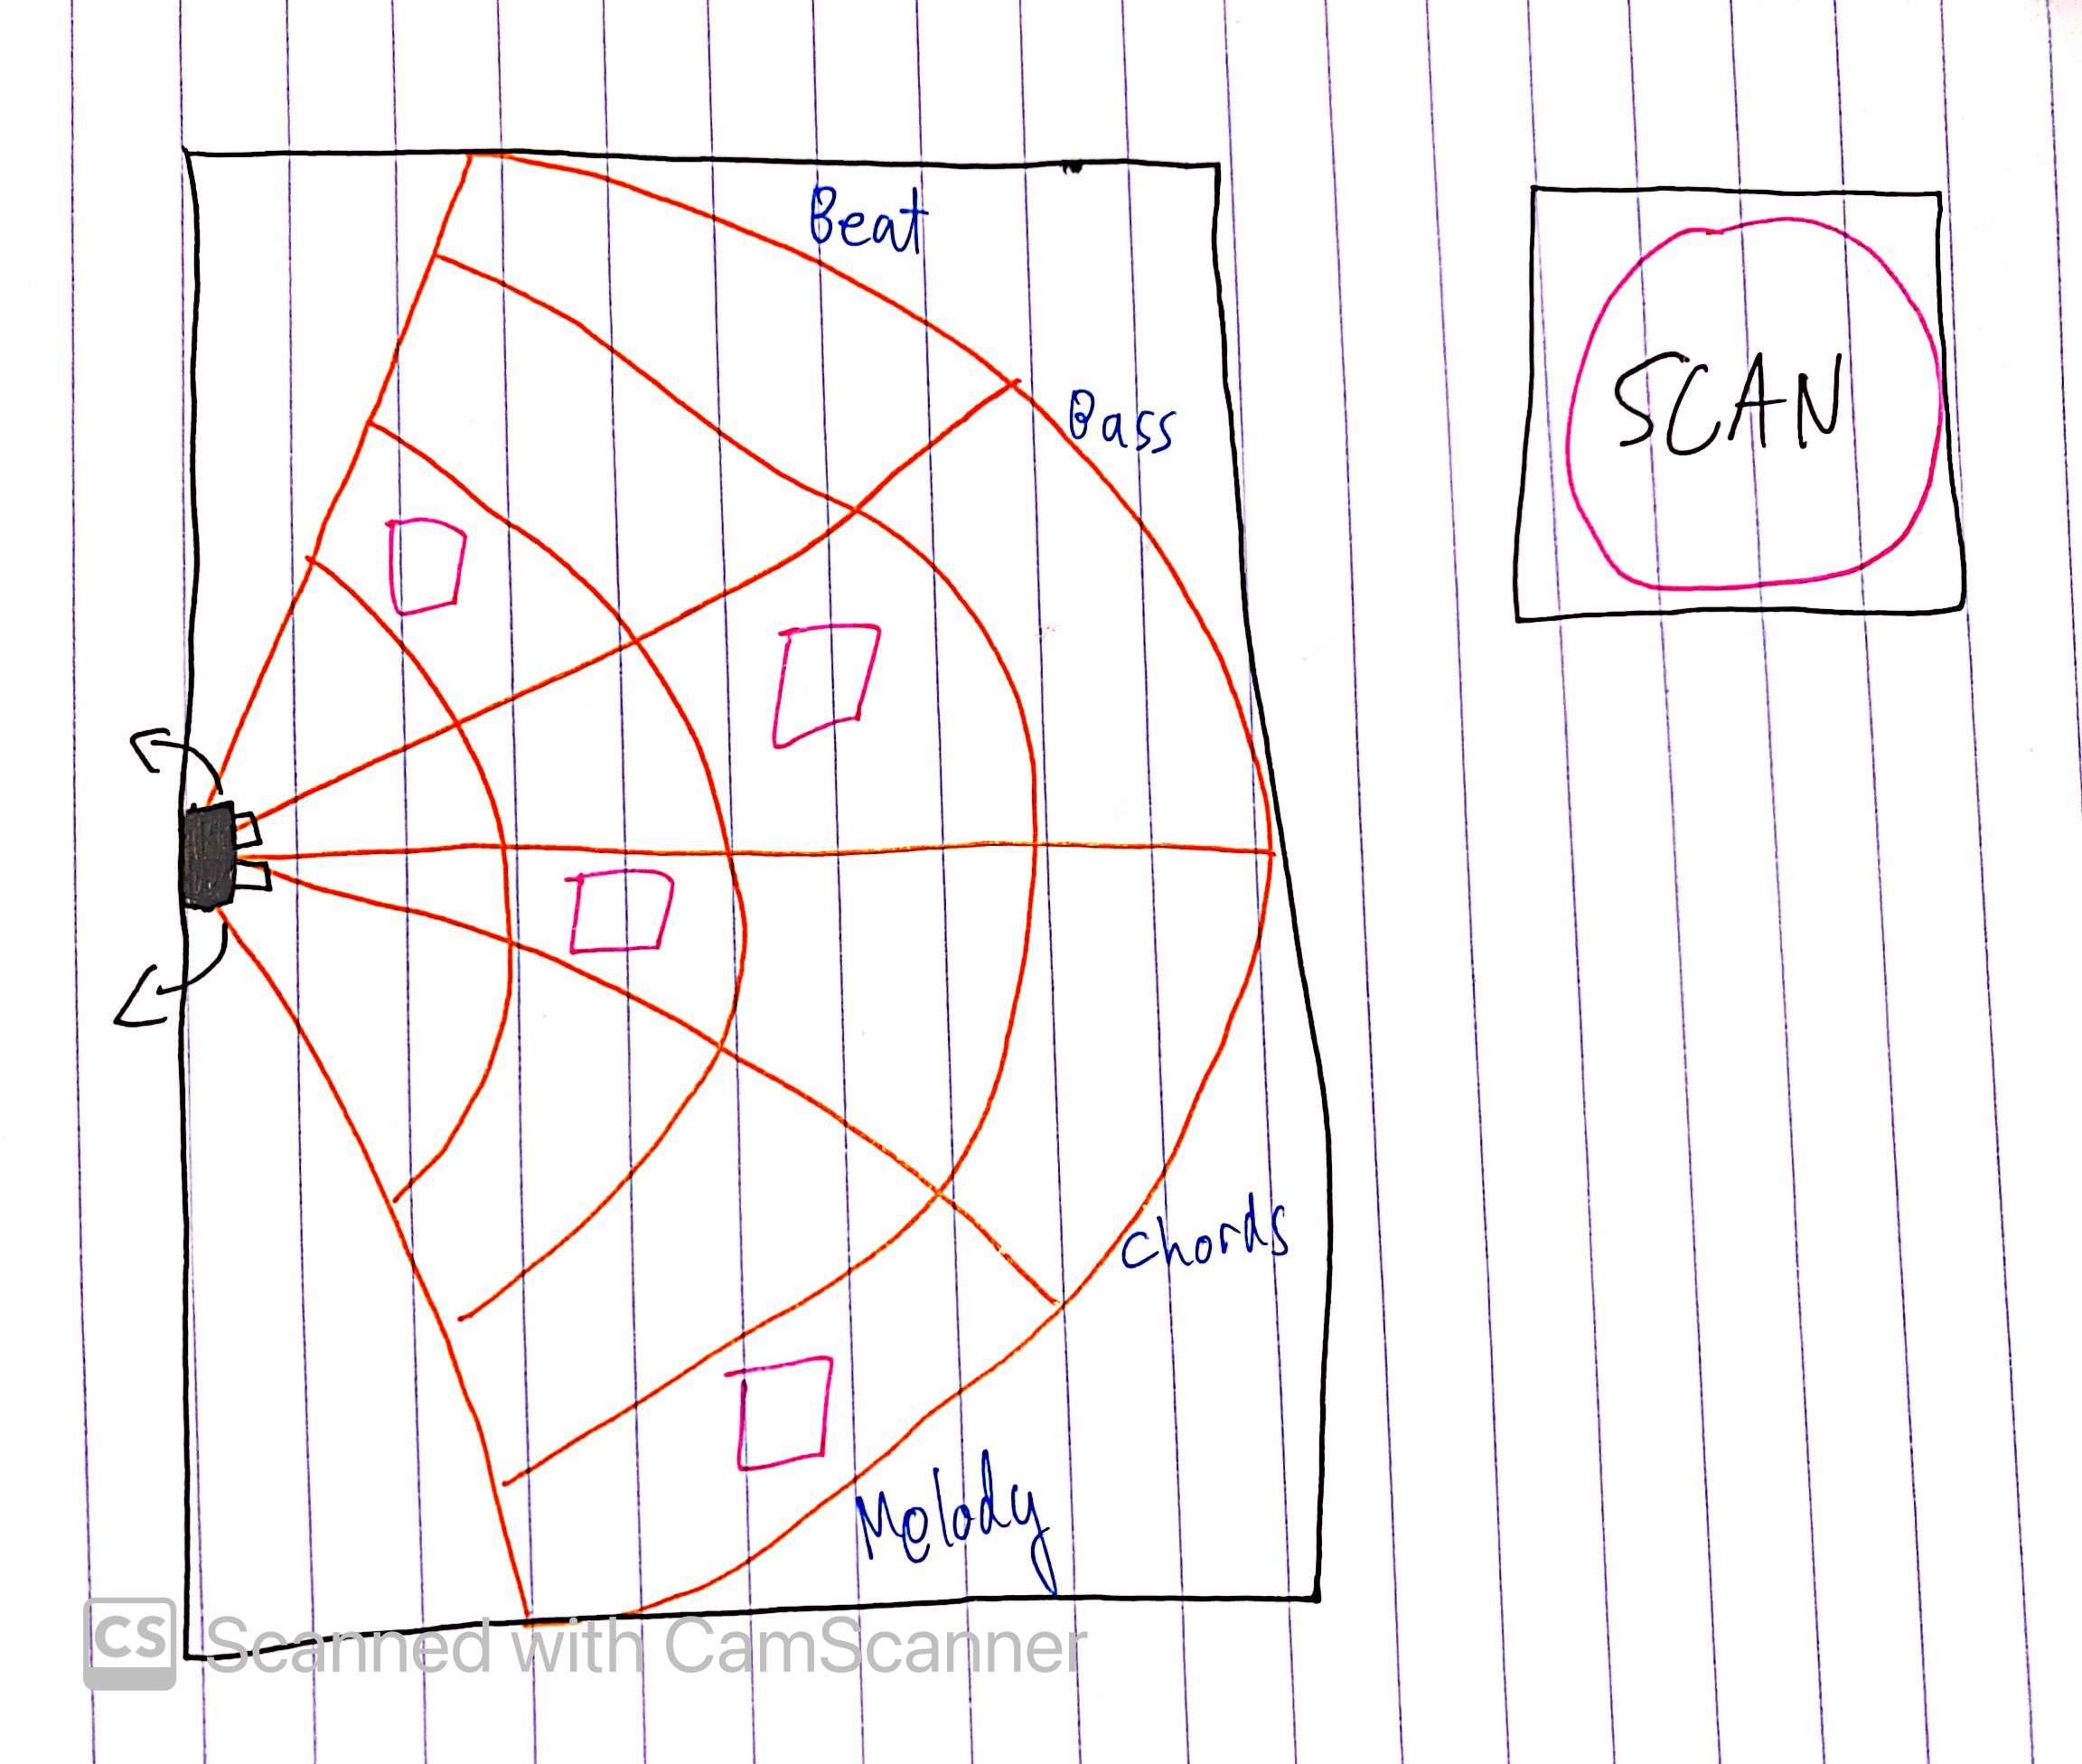 Beat
Bass
SCAN
Chords
Melody
CS Scanned with CamScanner